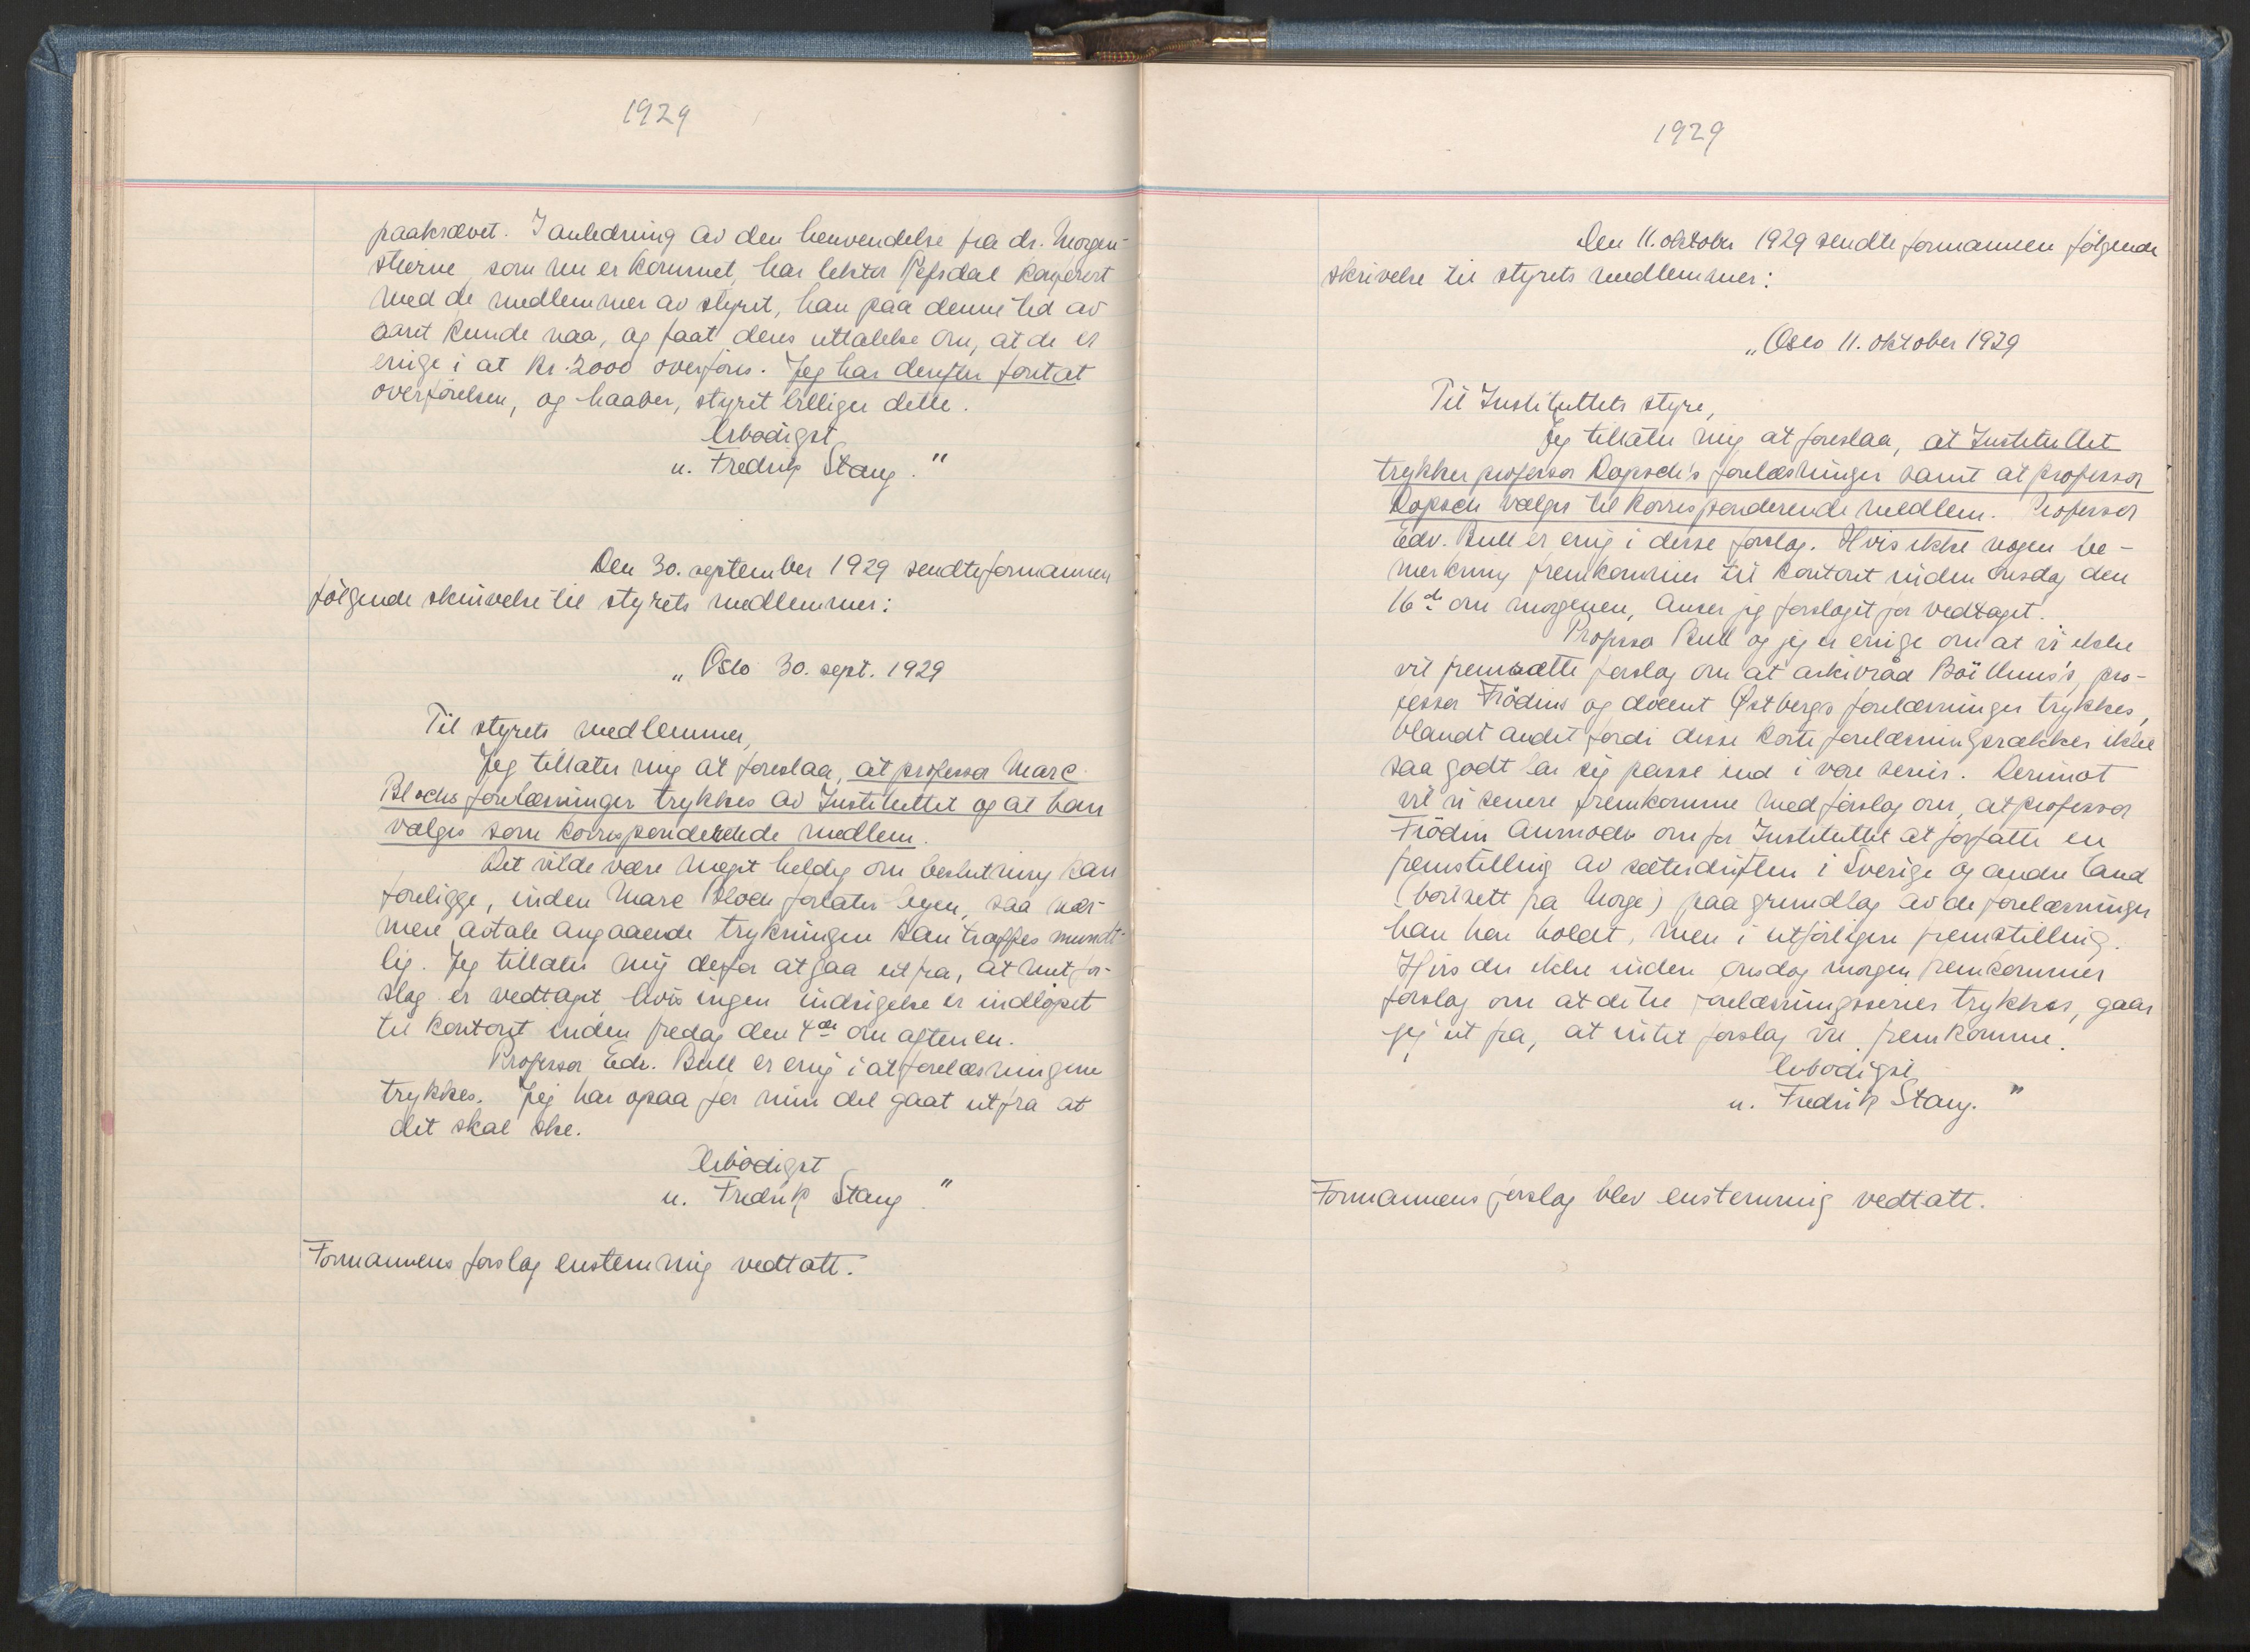 1929
paakrævet. I anledning av den henvendelse fra dr. Morgen-
stierne, som nu er kommet, har lektor Refsdal konferert
med de medlemmer av styret, han paa denne tid av
aaret kunde naa, og faat deres uttalelse om, at de er
enige i at kr. 2000 overføres. Jeg har derefter foretat
overførelsen, og haaber, styret billiger dette.
Erbødigst
u. Fredrik Stang."
Den 30. september 1929 sendte formannen
følgende skrivelse til styrets medlemmer:
„Oslo 30. sept. 1929
Til styrets medlemmer,
Jeg tillater mig at foreslaa, at professor Marc
Blochs forelæsninger trykkes av Instituttet og at han
vælges som korresponderende medlem.
Det vilde være meget heldig om beslutning kan
foreligge, inden Marc Bloch forlater byen, saa nær-
mere avtale angaaende trykningen kan træffes mundt-
lig. Jeg tillater mig derfor at gaa ut fra, at mit for-
slag er vedtaget, hvis ingen indsigelse er indløpet
til kontoret inden fredag den 4de om aftenen.
Professor Edv. Bull er enig i at forelæsningene
trykkes. Jeg har ogsaa for min del gaat ut fra at
det skal ske.
Erbødigst
u. Fredrik Stang"
Formannens forslag enstemmig vedtatt.
1929
Den 11. oktober 1929 sendte formannen følgende
skrivelse til styrets medlemmer:
„Oslo 11. oktober 1929
Til Instituttets styre,
Jeg tillater mig at foreslaa, at Instituttet
trykker professor Dopsch's forelæsninger samt at professor
Dopsch vælges til korresponderende medlem. Professor
Edv. Bull er enig i disse forslag. Hvis ikke nogen be-
merkning fremkommer til kontoret inden onsdag den
16de om morgenen, anser jeg forslaget for vedtaget.
Professor Bull og jeg er enige om at vi ikke
vil fremsætte forslag om at arkivråd Bøi Munss's, pro-
fessor Frödins og docent Østbergs forelæsninger trykkes,
blandt andet fordi disse korte forelæsningsrækker ikke
saa godt lar sig passe ind i vore serier. Derimot
vil vi senere fremkomme med forslag om, at professor
Frödin anmodes om for Instituttet at forfatte en
fremstilling av sæterdriften i Sverige og andre land
(bortsett fra Norge) paa grundlag av de forelæsninger
han har holdt, men i utførligere fremstilling.
Hvis der ikke inden onsdag morgen fremkommer
forslag om at de tre forelæsningsserier trykkes, gaar
jeg ut fra, at intet forslag vil fremkomme.
Erbødigst
u. Fredrik Stang."
Formannens forslag blev enstemmig vedtatt.